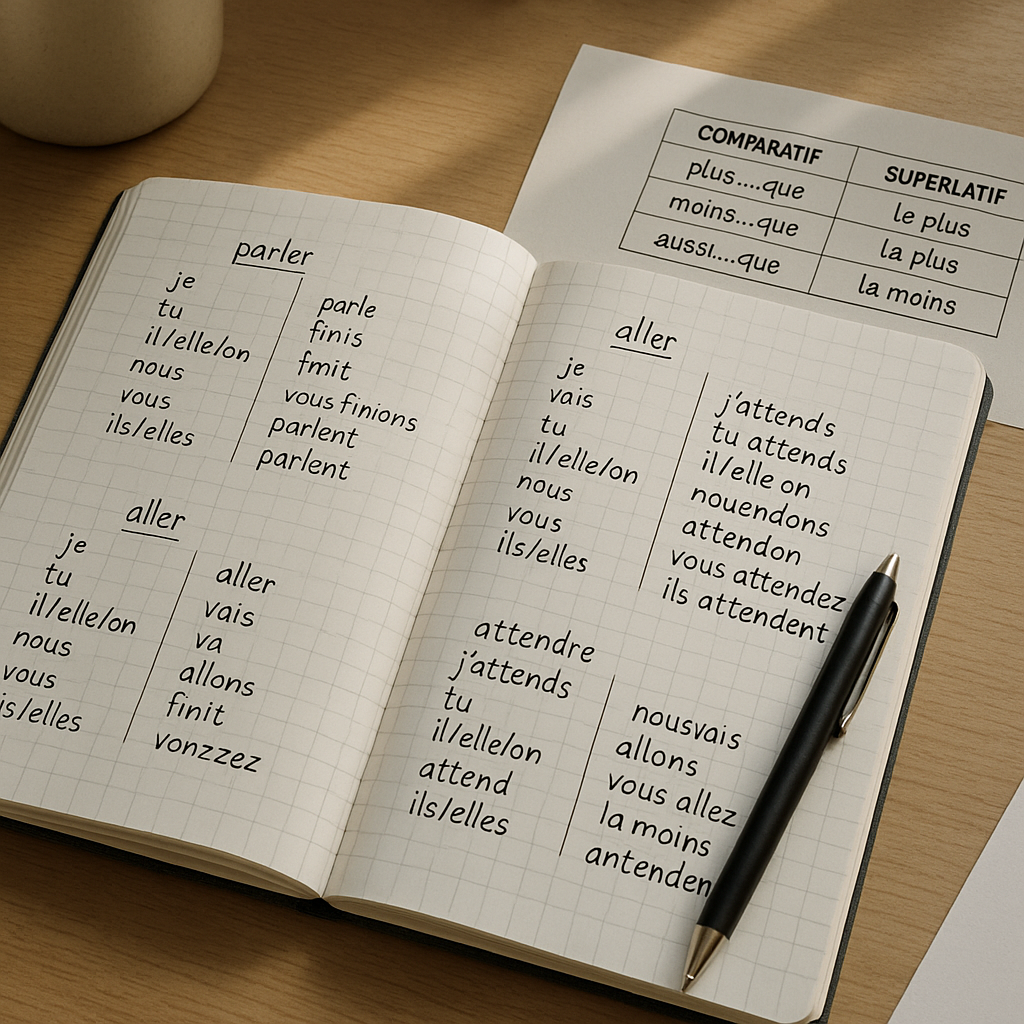 COMPARATIF SUPERLATIF
plus....que le plus
moins...que la plus
aussi....que la moins
parler
je
tu
il/elle/on
nous
vous
ils/elles
parle
finis
fmit
vous finions
parlent
parlent
aller
je
tu
il/elle/on
nous
vous
is/elles
aller
vais
va
allons
finit
vonzzez
aller
je
vais
tu
il/elle/on
nous
vous
ils/elles
j'attends
tu attends
il/elle on
nouendons
attendon
vous attendez
ils attendent
attendre
j'attends
tu
il/elle/on
attend
ils/elles
nousvais
allons
vous allez
la moins
antenden